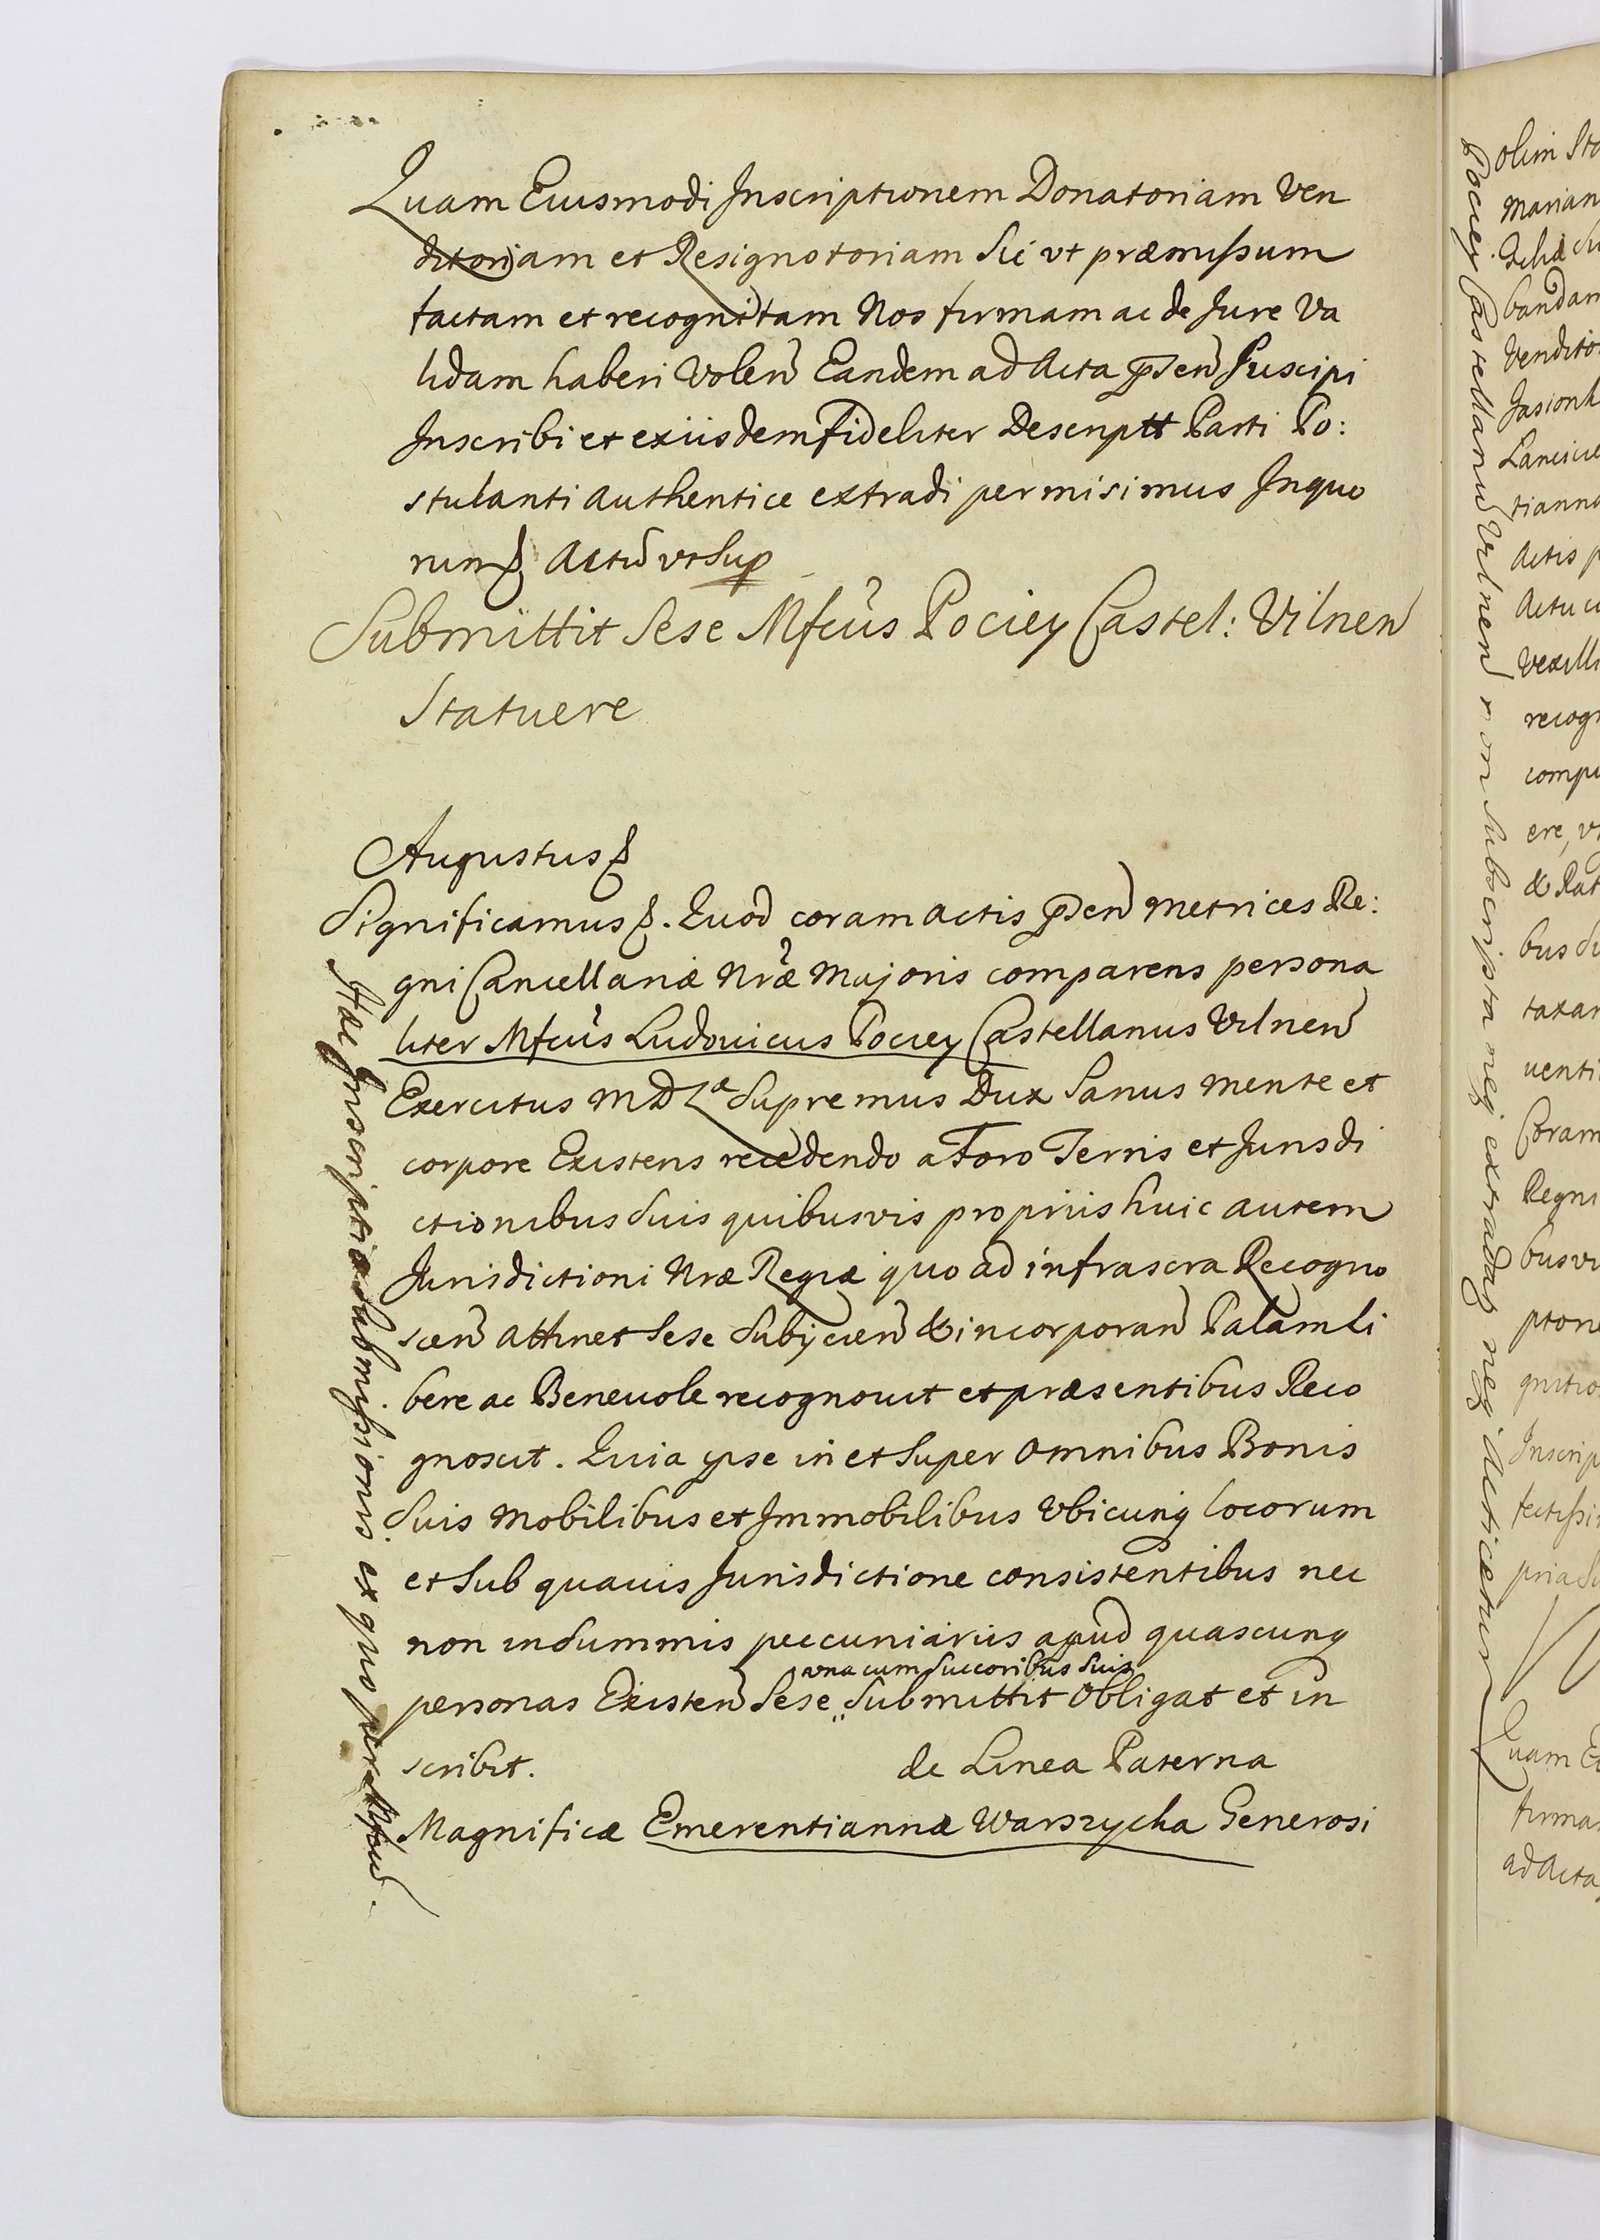 Quam Eiusmodi Inscriptionem Donatoriam Ven
ditoriam et Resignotoriam Sic vt præmissum
factam et recognitam Nos firmam ac de Jure Va
lidam haberi Volen Eandem ad Acta psen Suscipi
Inscribi et exiisdem Fideliter Descriptt Parti Po:
stulanti Authentice extradi permisimus Inquo
rum Actu vt Sup
Submittit Sese Mfcus Pociey Castel: Vilnen
Statuere
Augustus
Significamus. Quod coram actis psen Metrices Re:
gni Cancellariæ Nræ Majoris comparens persona
liter Mfcus Ludovicus Pociey Castellanus Vilnen
Exercitus M D L Supremus Dux Sanus mente et
corpore Existens recedendo a Foro Terris et Jurisdi
ctionibus Suis quibusvis propriis huic autem
Jurisdictioni Nræ Regiæ quo ad infrascra Recogno
scen Attinet Sese Subjicien & incorporan Palam li
bere ac Beneuole recognouit et præsentibus Reco
gnoscit. Quia ipse in et Super Omnibus Bonis
Suis Mobilibus et Immobilibus Vbicunq locorum
et Sub quavis Jurisdictione consistentibus nec
non in Summis peecuniariis apud quascunq
vna cum Succoribus Suis
personas Existen Sese Submittit Obligat et in
scribit. de Linea Paterna
Magnificæ Emerentiannæ Warszycka Generosi
Hæc Inscriptio Submissionis ex quo per Mfcu
Pociey Castellanu Vilnen non Subscripta neq extradaq neq Acticetur
olim Sta
Marian
bandam
Vendito
Lancicie
tianna
Actis p
Actu
Vexilli
recog
comp
ere, v
& Rat
bus Su
taxa
uenti
Coram
Regni
busvi
Inscrip
pria Su
Quam Ei
firma
ad Acta